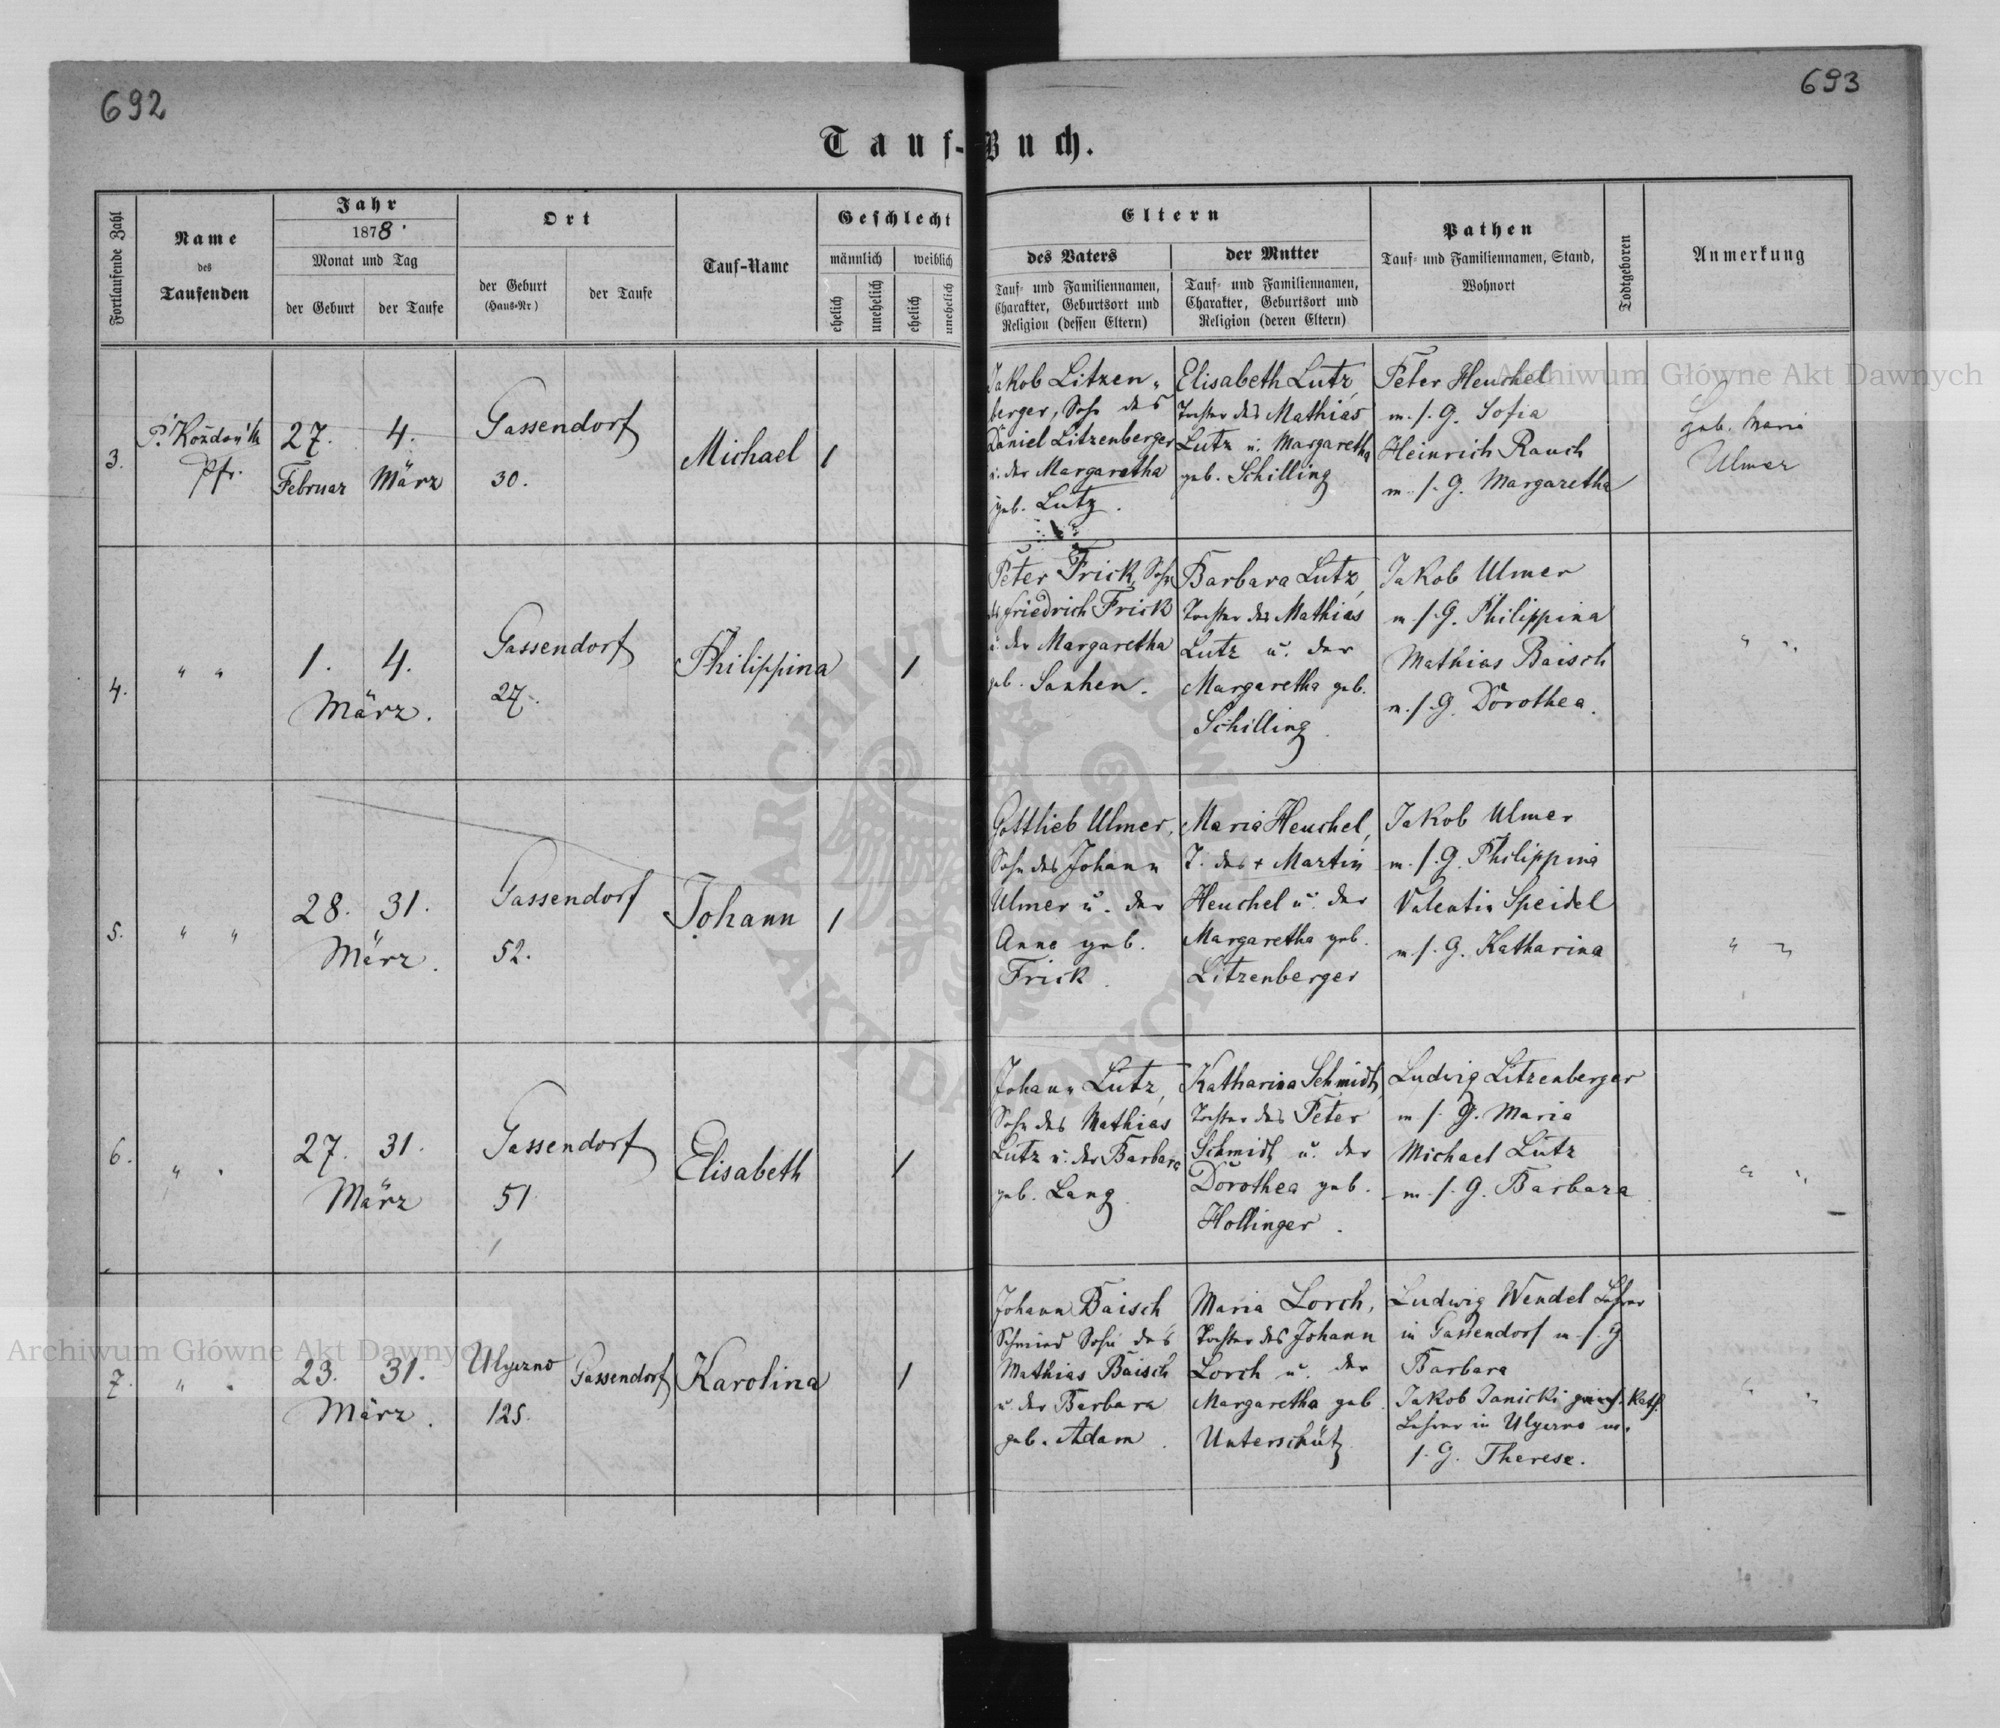 692
693
Tauf-Buch.
Fortlaufende Zahl
Name
des
Taufenden
Jahr
1878.
Monat und Tag
der Geburt
der Taufe
Ort
der Geburt
(Haus-Nr)
der Taufe
Tauf-Name
Geschlecht
männlich
weiblich
ehelich
unehelich
ehelich
unehelich
Eltern
des Vaters
Tauf- und Familiennamen,
Charakter, Geburtsort und
Religion (dessen Eltern)
der Mutter
Tauf- und Familiennamen,
Charakter, Geburtsort und
Religion (deren Eltern)
Pathen
Tauf- und Familiennamen, Stand,
Wohnort
Todtgeboren
Anmerkung
3.
Pfr.
27.
Februar
4.
März
Gassendorf
30.
Michael
1
Jakob Litzen-
berger, Sohn des
Daniel Litzenberger
u. der Margaretha
geb. Lutz.
Elisabeth Lutz,
Tochter des Mathias
Lutz u. Margaretha
geb. Schilling
Peter Heuchel
m. s. G. Sofia
Heinrich Rauch
m. s. G. Margaretha
Geb. Maria
Ulmer
4.
" "
1. 4.
März.
Gassendorf
27.
Philippina
1
Peter Frick, Sohn
des Friedrich Frick
u. der Margaretha
geb.
Barbara Lutz,
Tochter des Mathias
Lutz u. der
Margaretha geb.
Schilling.
Jakob Ulmer
m. s. G. Philippina
Mathias Baisch
m. s. G. Dorothea.
" "
5.
" "
28. 31.
März.
Gassendorf
52.
Johann
1
Gottlieb Ulmer,
Sohn des Johann
Ulmer u. der
Anna geb.
Frick.
Maria Heuchel,
T. des + Martin
Heuchel u. der
Margaretha geb.
Litzenberger
Jakob Ulmer
m. s. G. Philippina
Valentin Speidel
m. s. G. Katharina
" "
6.
" "
27. 31.
März
Gassendorf
51
Elisabeth
1
Johann Lutz,
Sohn des Mathias
Lutz u. der Barbara
geb. Lang
Katharina Schmidt,
Tochter des Peter
Schmidt u. der
Dorothea geb.
Hollinger.
Ludwig Litzenberger
m. s. G. Maria
Michael Lutz
m. s. G. Barbara
" "
7.
" "
23. 31.
März.
Ulyczno
125.
Gassendorf
Karolina
1
Johann Baisch
Schmied Sohn des
Mathias Baisch
u. der Barbara
geb. Adam.
Maria Lorch,
Tochter des Johann
Lorch u. der
Margaretha geb.
Unterschütz
Ludwig Wendel Lehrer
in Gassendorf m. s. G
Barbara
Jakob Janicki Kath.
Lehrer in Ulyczno m.
s. G. Therese.
" "
Archiwum Główne Akt Dawnych
Archiwum Główne Akt Dawnych
ARCHIWUM GŁÓWNE
AKT DAWNYCH